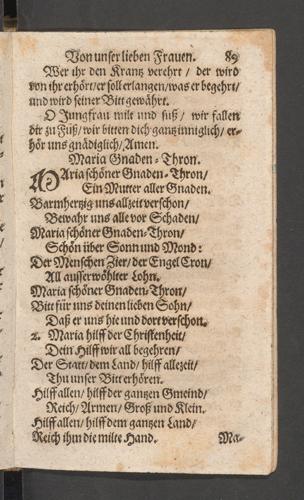 Von unser lieben Frauen. 89
Wer ihr den Krantz verehrt / der wird
von ihr erhört/er soll erlangen/was er begehrt/
und wird seiner Bitt gewährt.
O Jungfrau milt und süß/ wir fallen
dir zu Füß/wir bitten dich gantz inniglich/ er-
hör uns gnädiglich/Amen.
Maria Gnaden-Thron.
MAria schöner Gnaden-Thron/
Ein Mutter aller Gnaden.
Barmhertzig uns allzeit verschon/
Bewahr uns alle vor Schaden/
Maria schöner Gnaden-Thron/
Schön über Sonn und Mond:
Der Menschen Zier/der Engel Cron/
All ausserwöhlter Lohn.
Maria schöner Gnaden-Thron/
Bitt für uns deinen lieben Sohn/
Daß er uns hie und dort verschon.
2. Maria hilff der Christenheit/
Dein Hilff wir all begehren/
Der Statt/dem Land/ hilff allezeit/
Thu unser Bitt erhören.
Hilff allen/ hilff der gantzen Gmeind/
Reich/Armen/ Groß und Klein.
Hilff allen/ hilff dem gantzen Land/
Reich ihm die milte Hand. Ma-